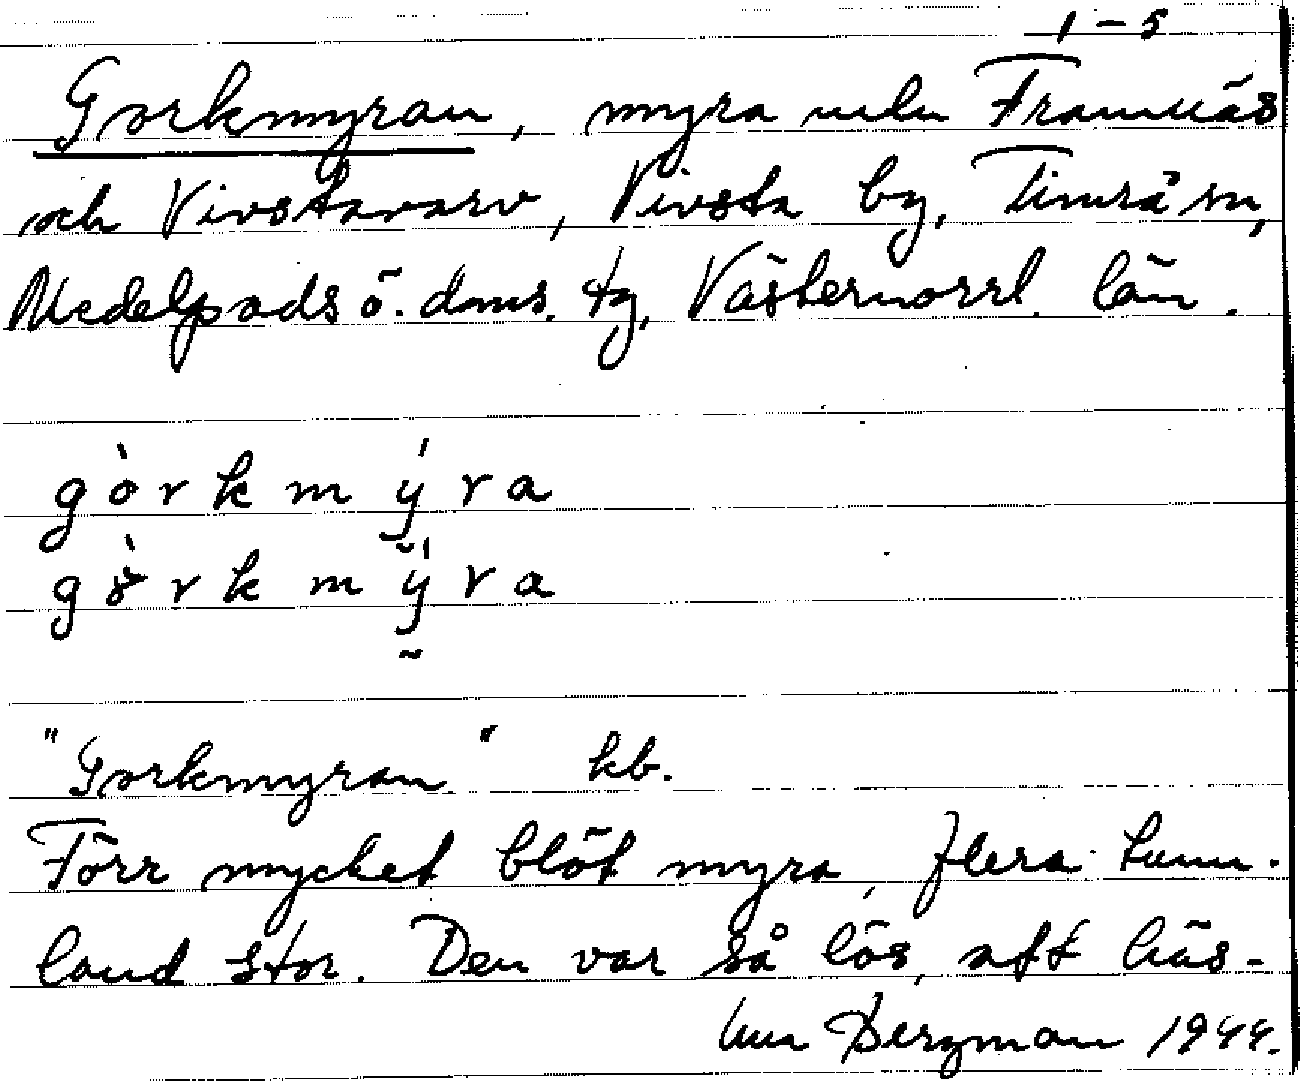 1-5
Gorkmyran, myra mln Framnäs
och Vivstavarv, Vivsta by, Timrå sn,
Medelpads ö. doms. tg, Västernorrl. län.
gòrkmýra
gòrkmýra
"Gorkmyran" kb.
Förr mycket blöt myra, flera tunn-
land stor. Den var så lös, att häs-
Bergman 1944.